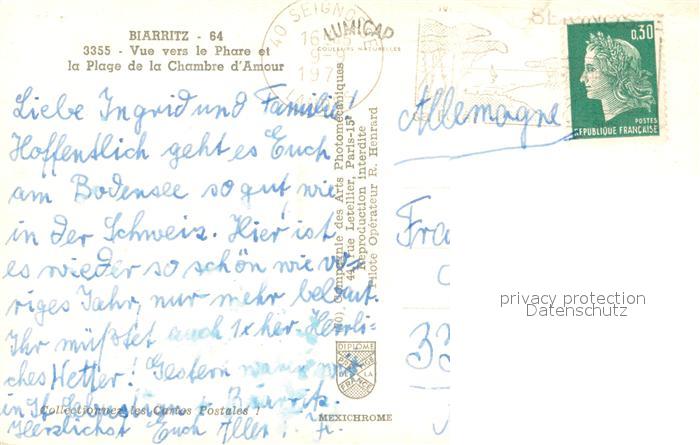 BIARRITZ - 64
3355 - Vue vers le Phare et
la Plage de la Chambre d'Amour
LUMICAP
COULEURS NATURELLES
40 SEIGNOSSE
16
9-
197
Liebe Ingrid und Familie!
Hoffentlich geht es Euch
am Bodensee so gut wie
in der Schweiz. Hier ist
es wieder so schön wie vo-
riges Jahr, nur mehr bebaut.
Ihr müßtet auch 1x her. Herrli-
ches Wetter! Gestern waren wir
in St. Sebastian + Biarritz.
Herzlichst Euch Allen
Collectionnez les Cartes Postales !
Compagnie des Arts Photomécaniques
44, rue Letellier, Paris-15e
Reproduction Interdite
Pilote Opérateur R. Henrard
DIPLOME
PRESTIGE
DE LA
FRANCE
MEXICHROME
0,30
POSTES
REPUBLIQUE FRANÇAISE
Allemagne
Fra
33
privacy protection
Datenschutz